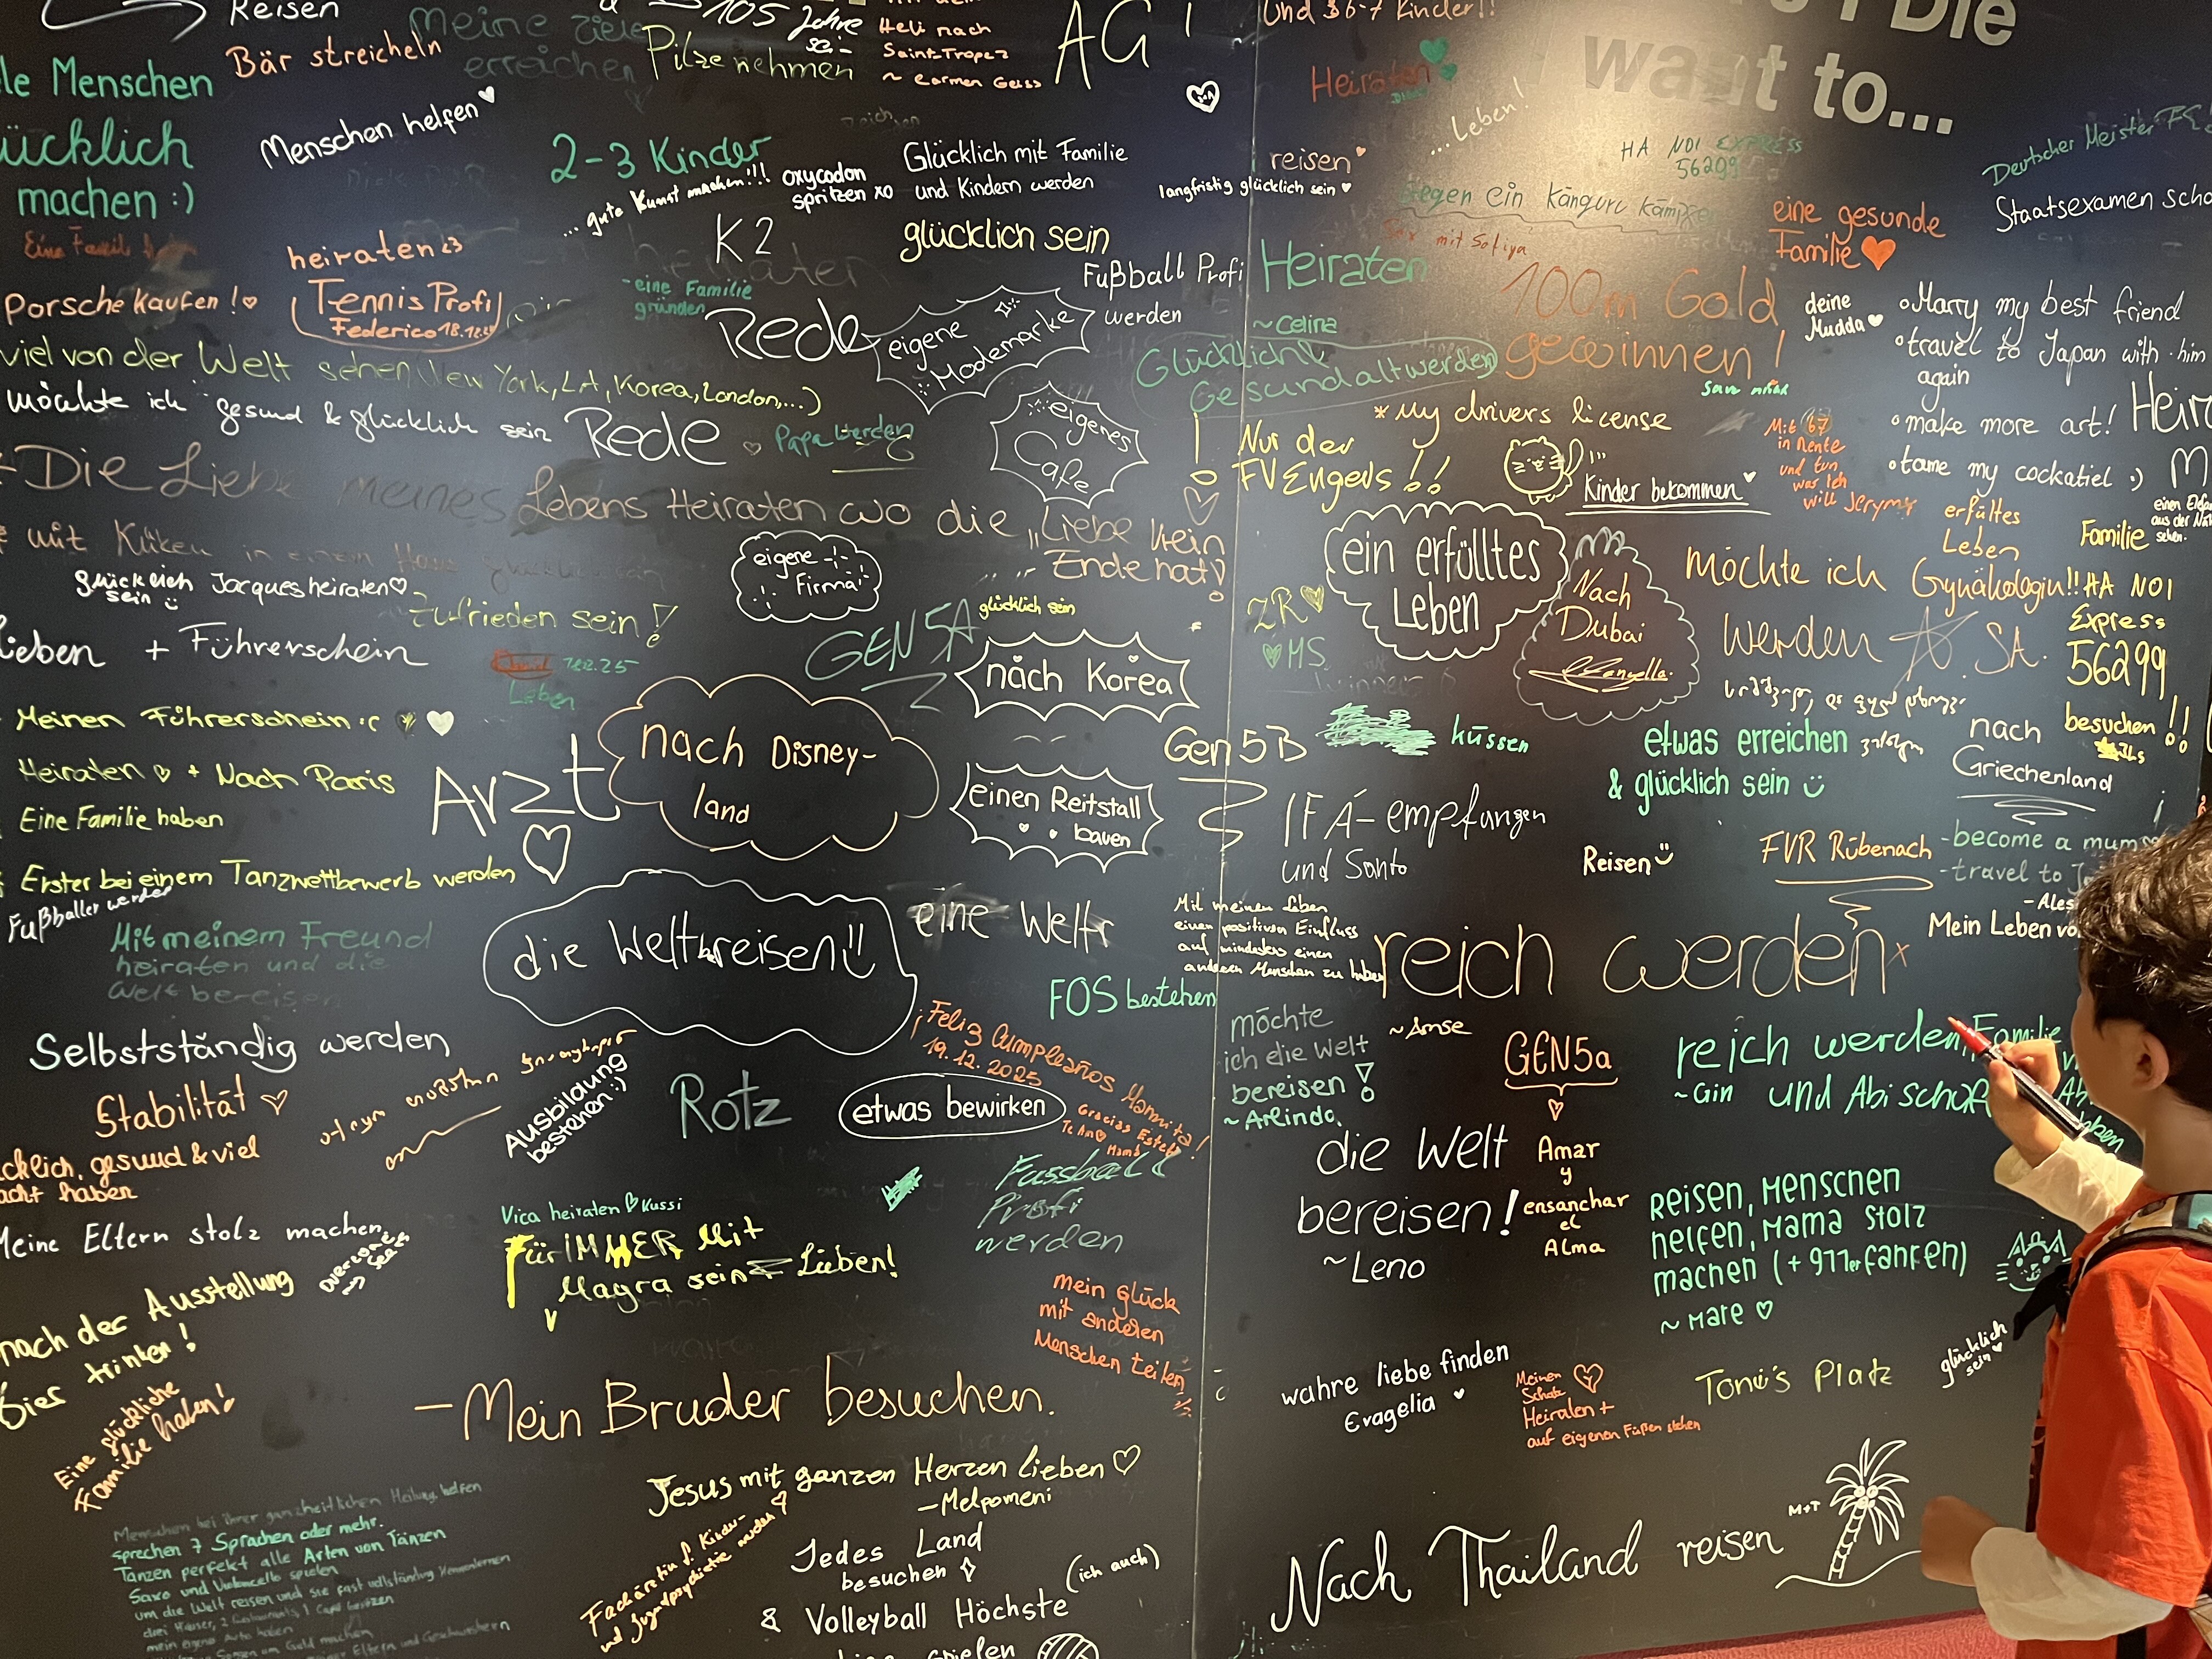 Reisen
Bär streicheln
meine Ziele
erreichen
105 Jahre
Pilze nehmen
Heli nach
Saint-Tropez
~ Carmen Geiss
AG !
und 36-7 Kinder!!
Die
want to...
Menschen
machen :)
Menschen helfen
2-3 Kinder
... gute Kunst machen!!!
oxycodon
spritzen xo
Glücklich mit Familie
und Kindern werden
K2
glücklich sein
Heiraten
...Leben!
reisen
langfristig glücklich sein
HA NOI EXPRESS
56299
gegen ein Känguru kämpfen
Deutscher Meister
Staatsexamen
eine gesunde
Familie
heiraten <3
Tennis Profi
Federico 18.12.
Porsche kaufen!
eine Familie
gründen
Rede
eigene
Modemarke
Fußball Profi
werden
Heiraten
~Celina
100m Gold
gewinnen!
deine
Mudda
Marry my best friend
travel to Japan with him
again
make more art!
tame my cockatiel :)
viel von der Welt sehen (New York, LA, Korea, London,...)
möchte ich gesund & glücklich sein
Rede
Papa werden
Glücklich &
Gesund alt werden
eigenes
Cafe
*My drivers license
Nur der
FV Engers!!
Kinder bekommen
Mit 67
in Rente
und tun
was ich
will
Die Liebe meines Lebens Heiraten wo die „Liebe kein
Ende hat!
glücklich
sein
Jacques heiraten
eigene
Firma
Zufrieden sein!
GEN 5A
glücklich sein
ein erfülltes
Leben
Nach
Dubai
möchte ich
erfültes
Leben
Gynäkologin!!
werden
Familie
HA NOI
Express
56299
besuchen!!
+ Führerschein
Leben
nach Korea
ZR
MS
Meinen Führerschein :c
Heiraten + Nach Paris
Eine Familie haben
Erster bei einem Tanzwettbewerb werden
Fußballer werden
Arzt
nach Disney-
land
Gen 5B
küssen
etwas erreichen
& glücklich sein
nach
Griechenland
einen Reitstall
bauen
IFA-empfangen
und Santo
Reisen
FVR Rübenach
-become a
-travel to
Mein Leben
Mit meinem Freund
heiraten und die
Welt bereisen
die Welt bereisen!!
eine Welt
Mit meinem Leben
einen positiven Einfluss
auf mindestens einen
anderen Menschen zu haben
reich werden
~Amse
FOS bestehen
Selbstständig werden
Stabilität
¡Feliz Cumpleaños Mamita!
19.12.2025
Ausbildung
bestehen:)
Rotz
etwas bewirken
möchte
ich die Welt
bereisen!
~Arlinda
GEN5a
Amar
y
ensanchar
el
Alma
reich werden
~Gin
und Abi
Familie
die Welt
bereisen!
~Leno
gesund & viel
haben
Meine Eltern stolz machen
Vica heiraten Kussi
Für IMMER Mit
Magra sein
Lieben!
Fussball
Profi
werden
Reisen, Menschen
helfen, Mama stolz
machen (+ 911er fahren)
~Mare
nach der Ausstellung
Bier trinken!
mein glück
mit anderen
Menschen teilen
Eine glückliche
Familie haben!
-Mein Bruder besuchen.
wahre liebe finden
Evagelia
Meinen
Schatz
Heiraten +
auf eigenen Füßen stehen
Toni's Platz
glücklich
sein
Jesus mit ganzen Herzen lieben
-Melpomeni
Menschen bei ihrer ganzheitlichen Heilung helfen
sprechen 7 Sprachen oder mehr.
Tanzen perfekt alle Arten von Tänzen
Saxo und Violoncello spielen
um die Welt reisen und sie fast vollständig kennenlernen
mein eigenes Auto haben
Fachärztin f. Kinder-
und Jugendpsychiatrie werden
Jedes Land
besuchen
(ich auch)
& Volleyball Höchste
spielen
Nach Thailand reisen
M+T